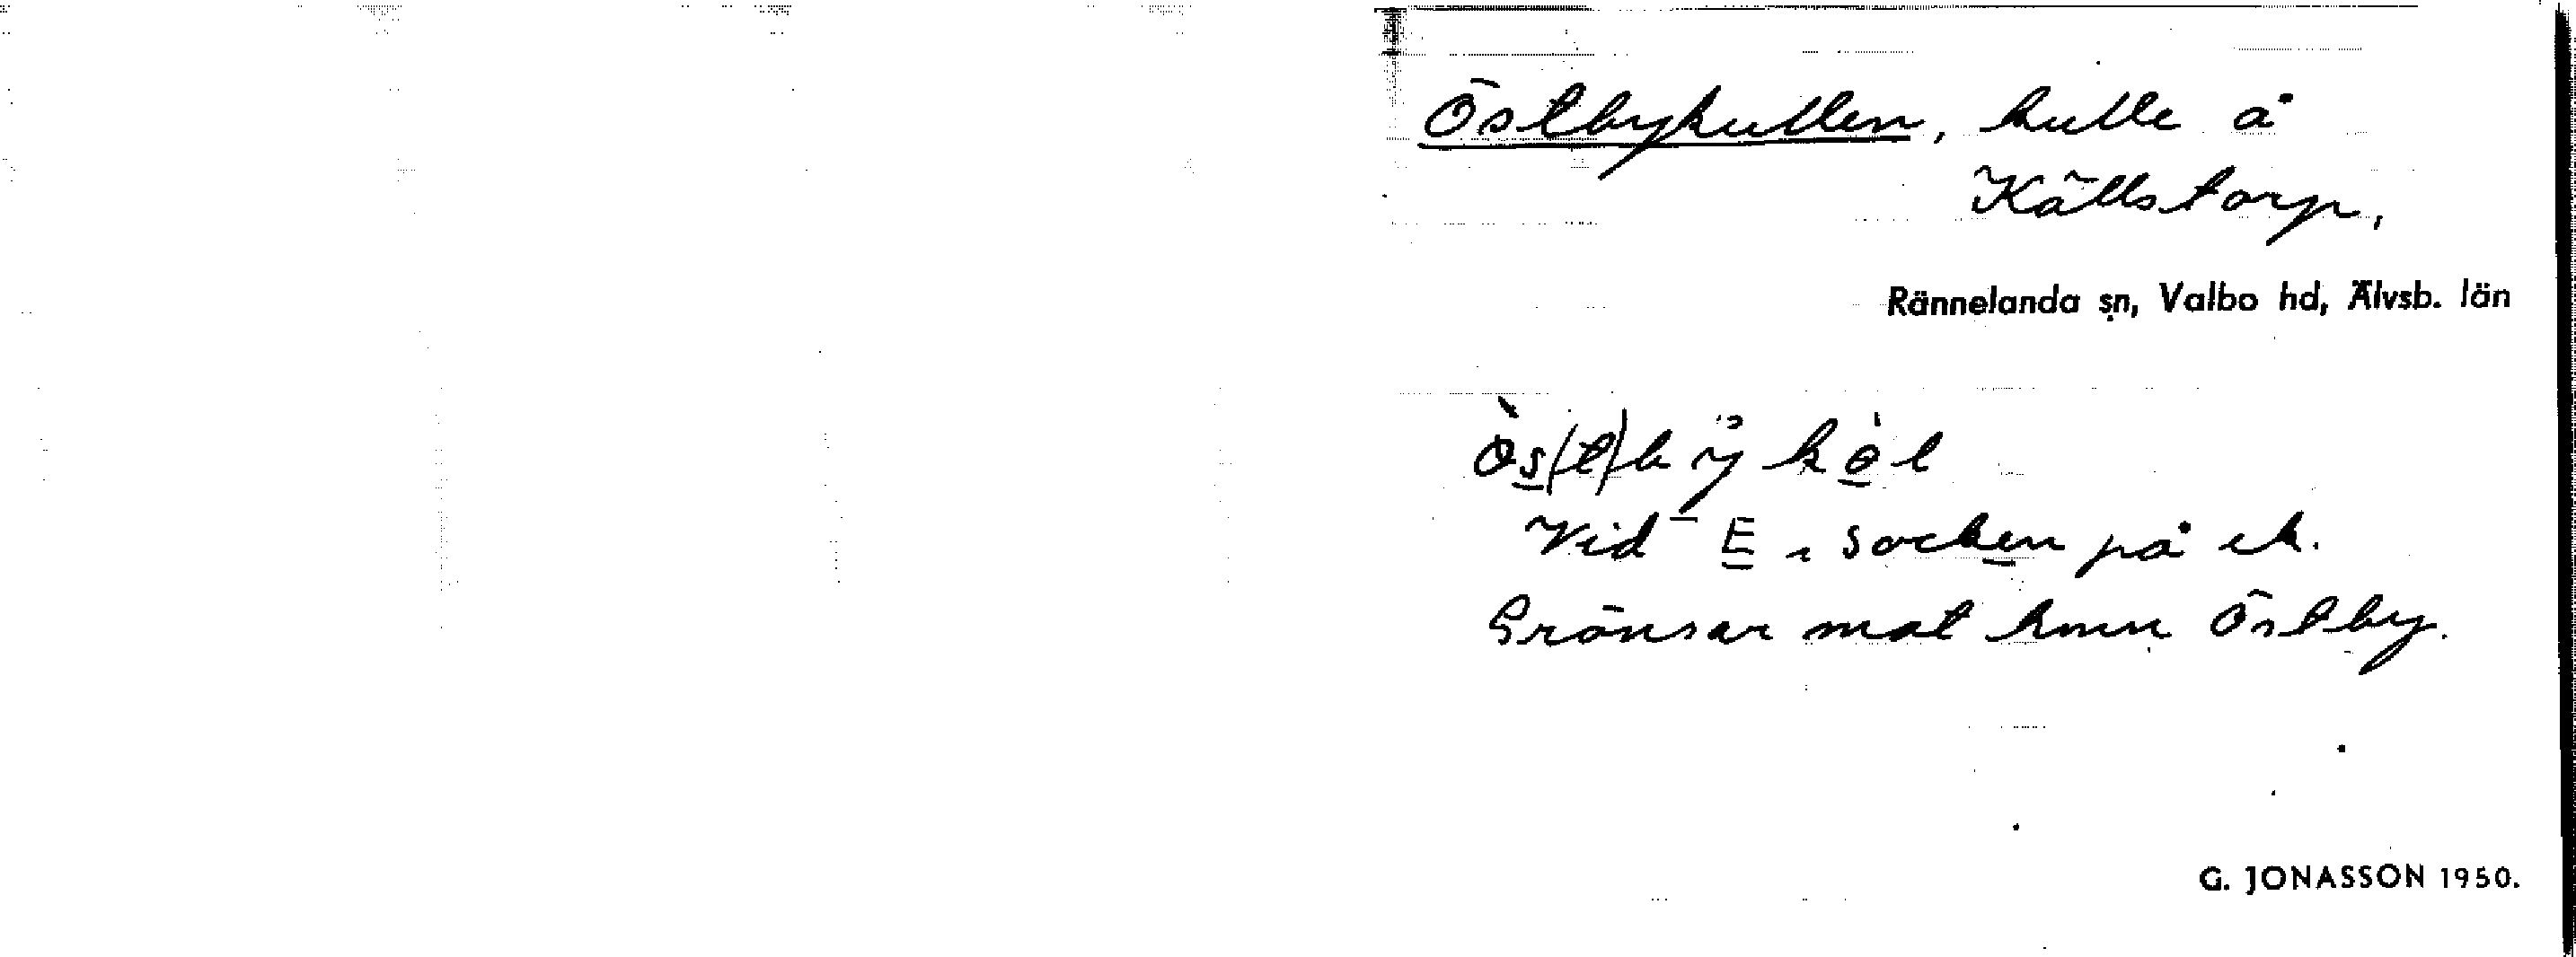 Östbykullen, kulle å
Källstorp,
Rännelanda sn, Valbo hd, Älvsb. län
Vid E i socken på ek.
Gränsar mot hmn Östby.
G. JONASSON 1950.